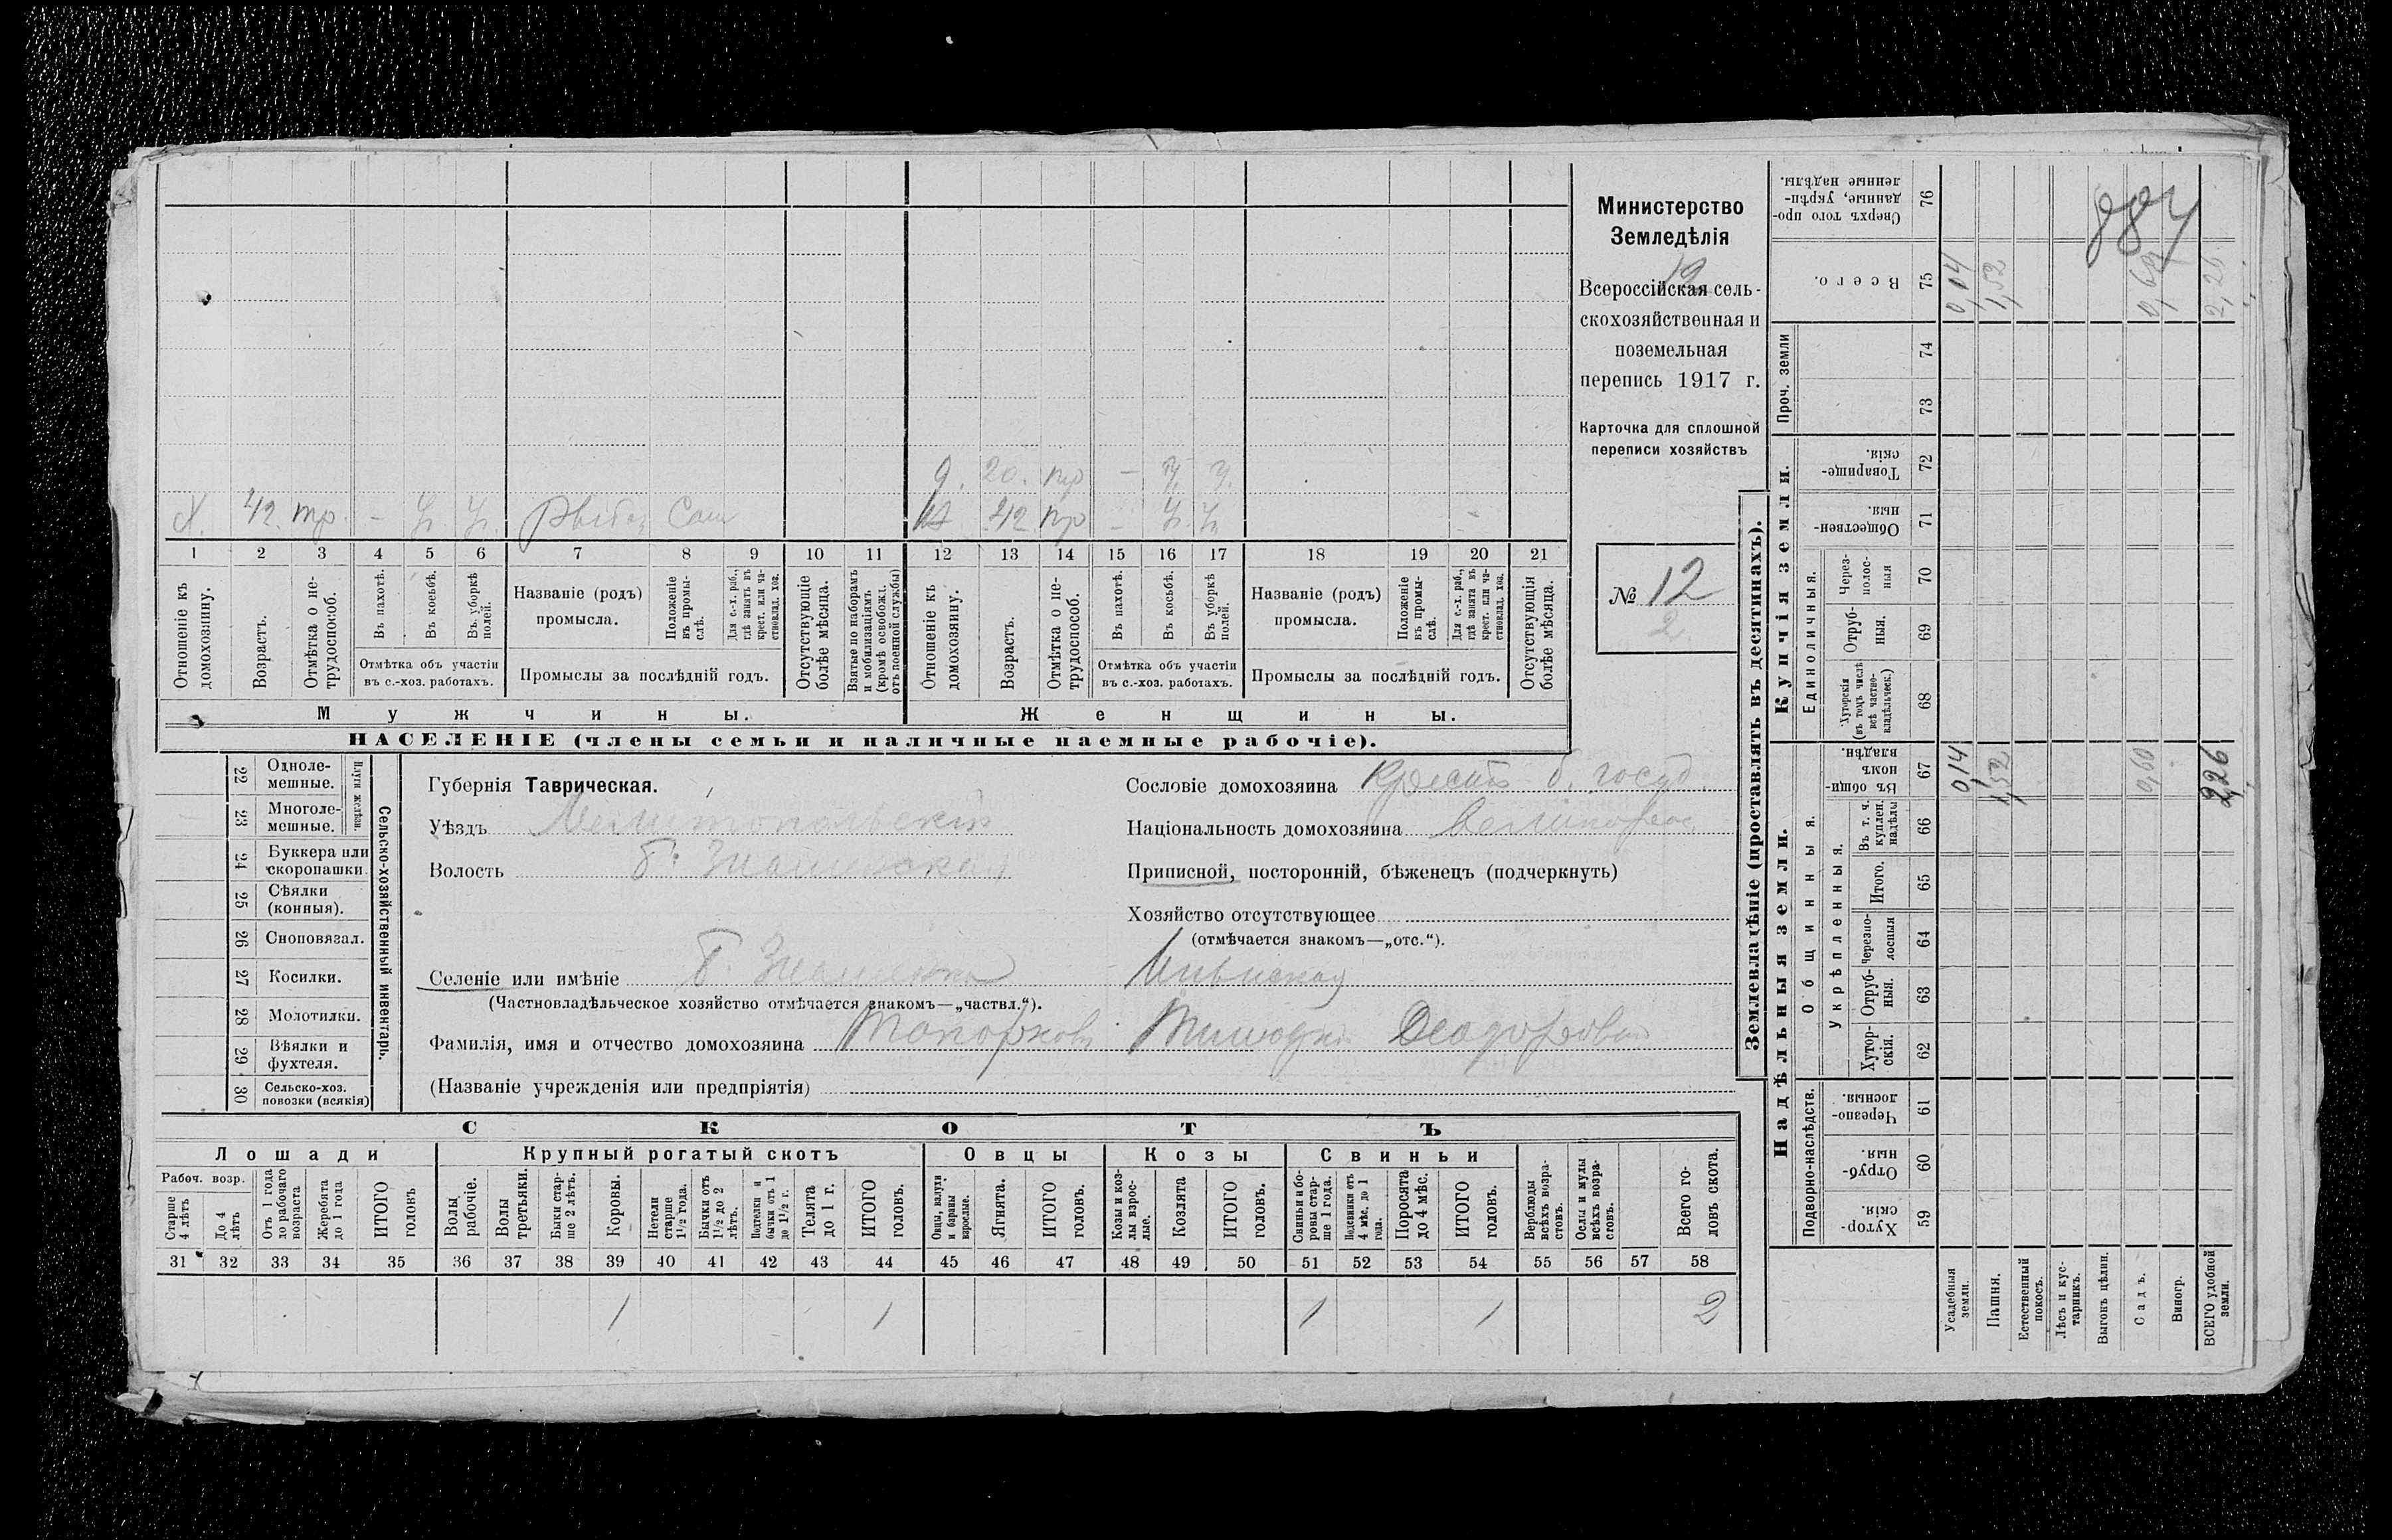 Министерство
Земледѣлія
12
Всероссійская сель-
скохозяйственная и
поземельная
перепись 1917 г.
Карточка для сплошной
переписи хозяйствъ
№ 12
2
д. 20. пр — У. У.
Х. 42. тр. – У. У.
42 пр – У. У.
1 2 3 4 5 6 7 8 9 10 11 12 13 14 15 16 17 18 19 20 21
Отношеніе къ домохозяину.
Возрастъ.
Отмѣтка о не-трудоспособ.
Въ пахотѣ.
Въ косьбѣ.
Въ уборкѣ полей.
Отмѣтка объ участіи
въ с.-хоз. работахъ.
Названіе (родъ)
промысла.
Положеніе въ промы-слѣ.
Для с.-х. раб., гдѣ занятъ въ крест. или ча-стновлад. хоз.
Промыслы за послѣдній годъ.
Отсутствующіе болѣе мѣсяца.
Взятые по наборамъ и мобилизаціямъ (кромѣ освобожд. отъ военной службы)
Отношеніе къ домохозяину.
Возрастъ.
Отмѣтка о не-трудоспособ.
Въ пахотѣ.
Въ косьбѣ.
Въ уборкѣ полей.
Отмѣтка объ участіи
въ с.-хоз. работахъ.
Названіе (родъ)
промысла.
Положеніе въ промы-слѣ.
Для с.-х. раб., гдѣ занята въ крест. или ча-стновлад. хоз.
Промыслы за послѣдній годъ.
Отсутствующія болѣе мѣсяца.
Мужчины.
Женщины.
НАСЕЛЕНІЕ (члены семьи и наличные наемные рабочіе).
22 Одноле-мешные.
23 Многоле-мешные.
Плуги желѣзн.
24 Буккера или скоропашки.
25 Сѣялки (конныя).
26 Сноповязал.
27 Косилки.
28 Молотилки.
29 Вѣялки и фухтеля.
30 Сельско-хоз. повозки (всякія)
Сельско-хозяйственный инвентарь.
Губернія Таврическая.
Уѣздъ Мелитопольскій
Волость Б. Знаменская
Селеніе или имѣніе Б. Знаменка
(Частновладѣльческое хозяйство отмѣчается знакомъ—„частвл.“).
Фамилія, имя и отчество домохозяина Топорковъ
(Названіе учрежденія или предпріятія)
Сословіе домохозяина Крест. б. госуд.
Національность домохозяина Великорос
Приписной, посторонній, бѣженецъ (подчеркнуть)
Хозяйство отсутствующее
(отмѣчается знакомъ—„отс.“).
СКОТЪ
Лошади
Рабоч. возр.
Старше 4 лѣтъ
До 4 лѣтъ
Отъ 1 года до рабочаго возраста
Жеребята до 1 года
ИТОГО головъ
Крупный рогатый скотъ
Волы рабочіе.
Волы третьяки.
Быки стар-ше 2 лѣтъ.
Коровы.
Нетели старше 1½ года.
Бычки отъ 1½ до 2 лѣтъ.
Подтелки и бычки отъ 1 до 1½ г.
Телята до 1 г.
ИТОГО головъ.
Овцы
Овцы, валухи и бараны взрослые.
Ягнята.
ИТОГО головъ.
Козы
Козы и коз-лы взрос-лые.
Козлята
ИТОГО головъ.
Свиньи
Свиньи и бо-ровы стар-ше 1 года.
Подсвинки отъ 4 мѣс. до 1 года.
Поросята до 4 мѣс.
ИТОГО головъ.
Верблюды всѣхъ возра-стовъ.
Ослы и мулы всѣхъ возра-стовъ.
Всего го-ловъ скота.
31 32 33 34 35 36 37 38 39 40 41 42 43 44 45 46 47 48 49 50 51 52 53 54 55 56 57 58
1 1 1 1 2
Землевладѣніе (проставлять въ десятинахъ).
Надѣльныя земли.
Подворно-наслѣдств.
Хутор-скія. 59
Отруб-ныя. 60
Черезпо-лосныя. 61
Общинныя.
Укрѣпленныя.
Хутор-скія. 62
Отруб-ныя. 63
Черезпо-лосныя 64
Итого. 65
Въ т. ч. куплен. надѣлы 66
Въ общи-номъ владѣн. 67
0,14 1,52 0,60 2,26
Купчія земли.
Единоличныя.
Хуторскія (въ томъ числѣ всѣ частно-владѣльческ.) 68
Отруб-ныя. 69
Через-полос-ныя 70
Обществен-ныя. 71
Товарище-скія. 72
Проч. земли
73
74
Всего. 75
0,14 1,52 0,60 2,26
Сверхъ того про-данные, укрѣп-ленные надѣлы. 76
Усадебныя земли.
Пашня.
Естественный покосъ.
Лѣсъ и кус-тарникъ.
Выгонъ цѣлин.
Садъ.
Виногр.
ВСЕГО удобной земли.